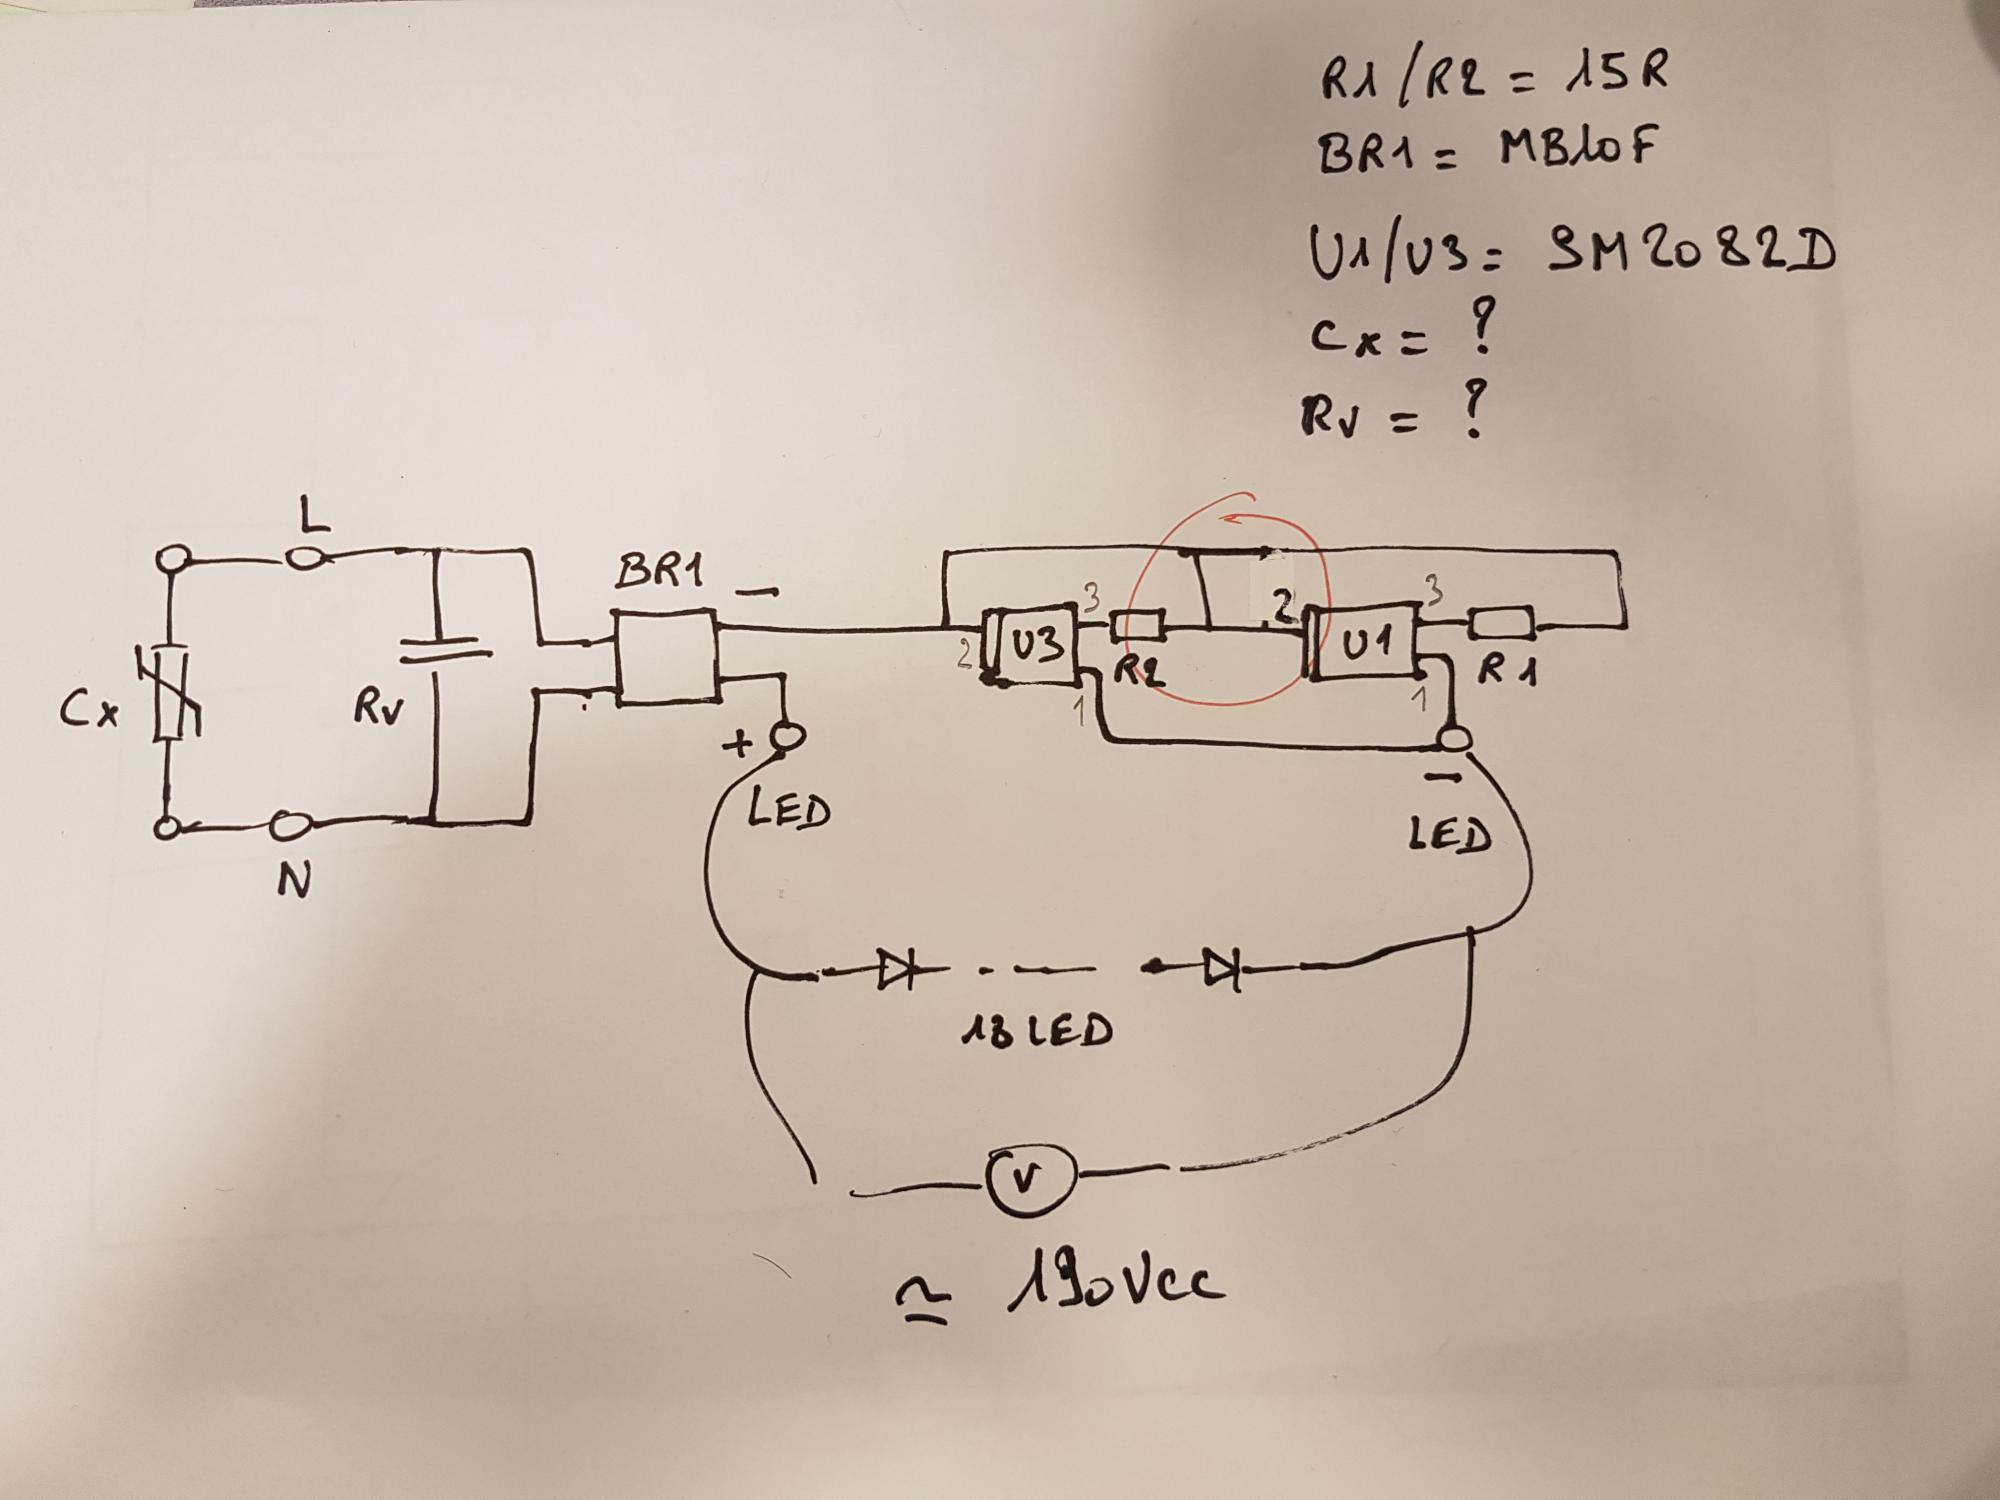 R1/R2 = 15R
BR1 = MB10F
U1/U3 = SM2082D
Cx = ?
Rv = ?
L
BR1
−
3
2
3
2
U3
U1
R2
R1
1
1
Cx
Rv
+
−
LED
LED
N
18 LED
V
≃ 190Vcc